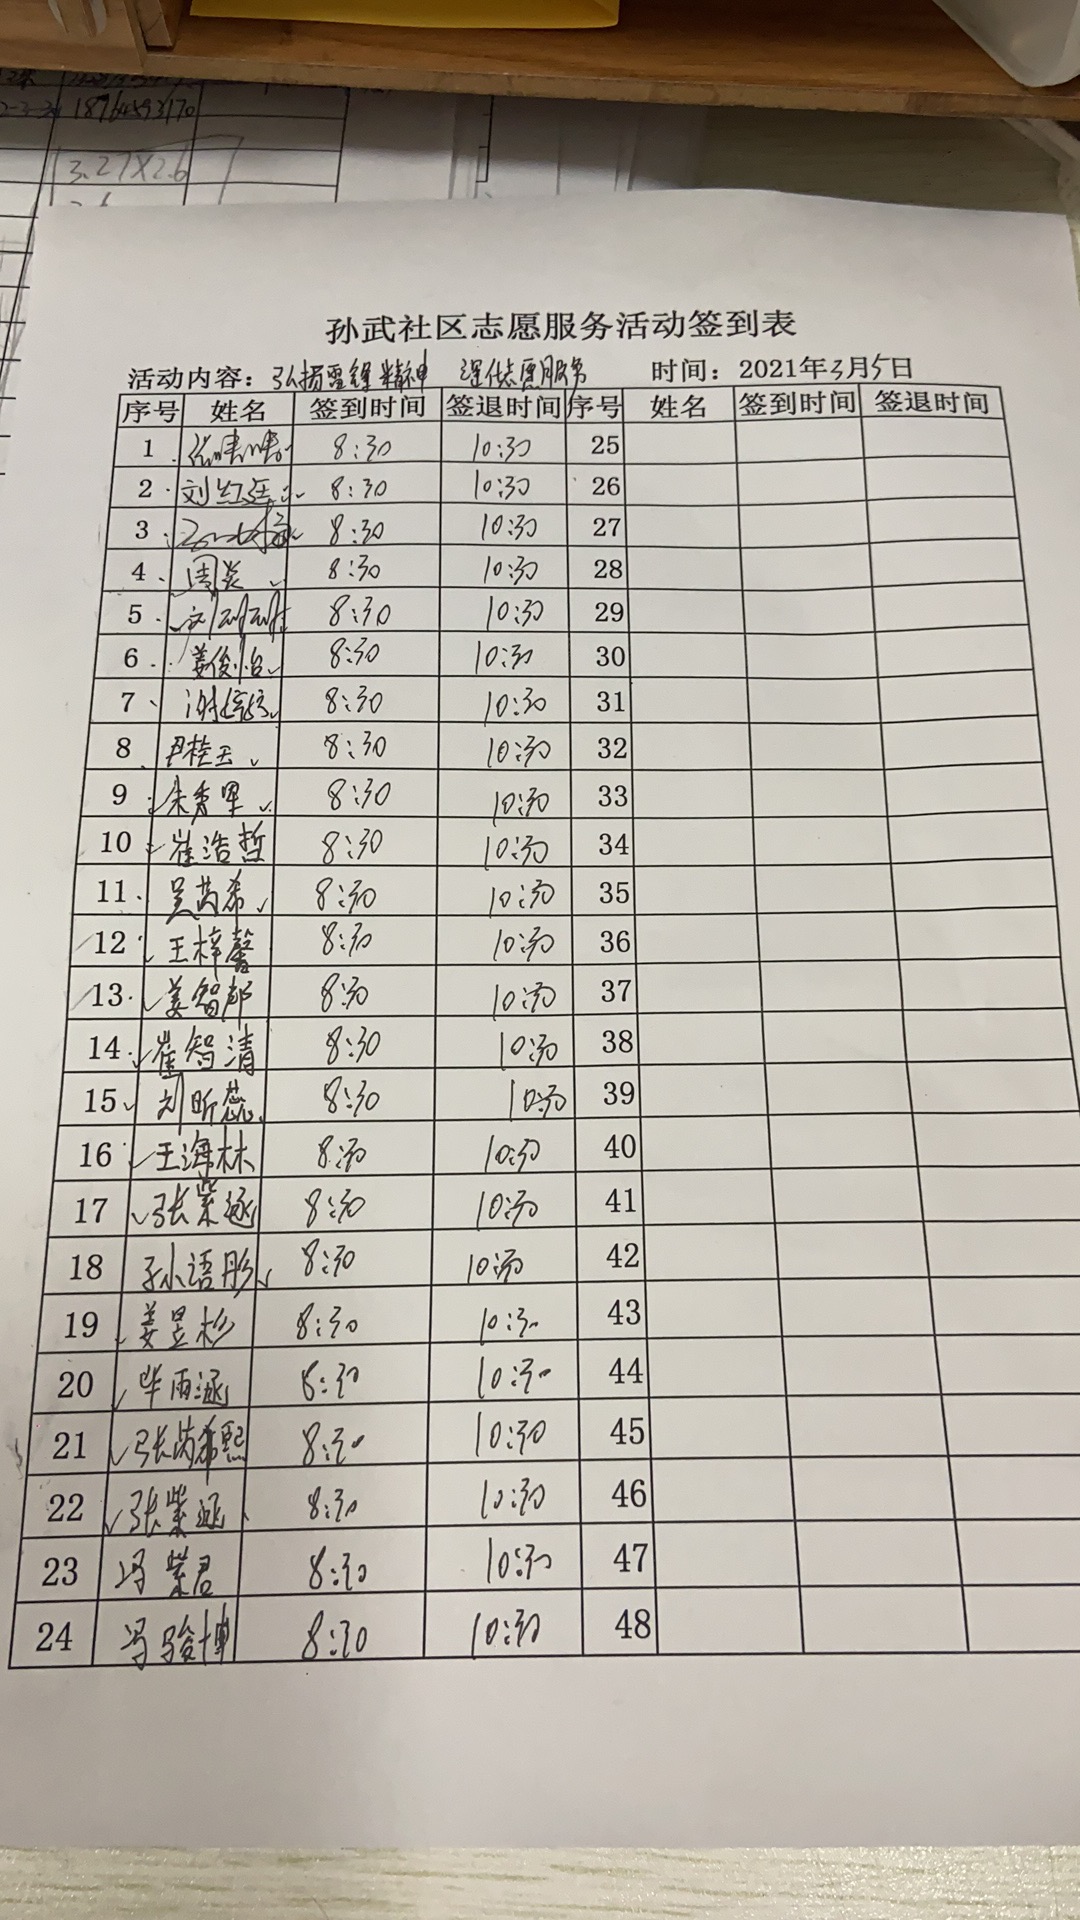 18764593170
3.27×2.6
孙武社区志愿服务活动签到表
活动内容：弘扬雷锋精神 志愿服务 时间：2021年3月5日
序号 姓名 签到时间 签退时间 序号 姓名 签到时间 签退时间
1 8:30 10:30 25
2 刘红廷 8:30 10:30 26
3 8:30 10:30 27
4 周炎 8:30 10:30 28
5 刘 8:30 10:30 29
6 姜俊怡 8:30 10:30 30
7 谢 8:30 10:30 31
8 尹桂玉 8:30 10:30 32
9 朱秀军 8:30 10:30 33
10 崔浩哲 8:30 10:30 34
11 吴芮希 8:30 10:30 35
12 王梓馨 8:30 10:30 36
13 姜智郁 8:30 10:30 37
14 崔智清 8:30 10:30 38
15 刘昕蕊 8:30 10:30 39
16 王海林 8:30 10:30 40
17 张紫涵 8:30 10:30 41
18 孙语彤 8:30 10:30 42
19 姜昱杉 8:30 10:30 43
20 毕雨涵 8:30 10:30 44
21 张芮希熙 8:30 10:30 45
22 张紫涵 8:30 10:30 46
23 冯紫君 8:30 10:30 47
24 冯骏博 8:30 10:30 48